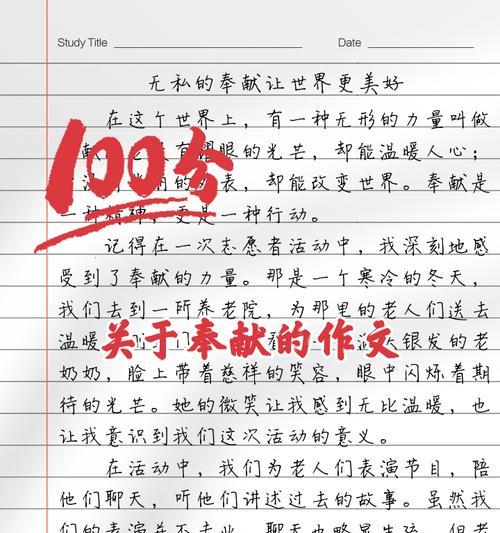 Study Title
Date
无私的奉献让世界更美好
在这个世界上，有一种无形的力量叫做
献 有耀眼的光芒，却能温暖人心；
表，却能改变世界。奉献是
一种精神，更是一种行动。
100分
记得在一次志愿者活动中，我深刻地感
受到了奉献的力量。那是一个寒冷的冬天，
我们去到一所养老院，为那里的老人们送去
温暖 银发的老
关于奉献的作文
奶奶，脸上带着慈祥的笑容，眼中闪烁着期
待的光芒。她的微笑让我感到无比温暖，也
让我意识到我们这次活动的意义。
在活动中，我们为老人们表演节目，陪
他们聊天，听他们讲述过去的故事。虽然我
们的表演并不专业，聊天也略显生疏，但老